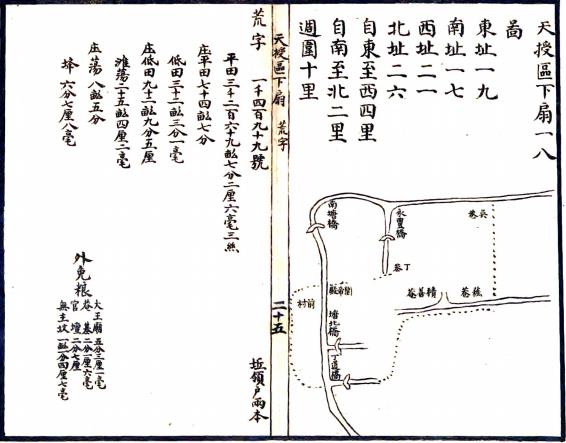 天授區下扇一八
啚
東址一九
南址一七
西址二一
北址二六
自東至西四里
自南至北二里
週圍十里
吳巷
永豐橋
南塘橋
丁巷
積善菴
蔣廟
前村
塘北橋
天授區下扇 荒字
二十五
荒字 一千四百九十九號
坵領戶兩本
平田三千二百六十九畝七分二厘六毫三絲
庄平田七十四畝七分
低田三十二畝三分一毫
庄低田九十二畝九分五厘
灘蕩二十五畝四厘二毫
庄蕩八畝五分
墳六分七厘八毫
外免粮
大王廟五分三厘一毫
巷基二分一厘六毫
官壇二分七厘
無主坟一畝一分四厘七毫